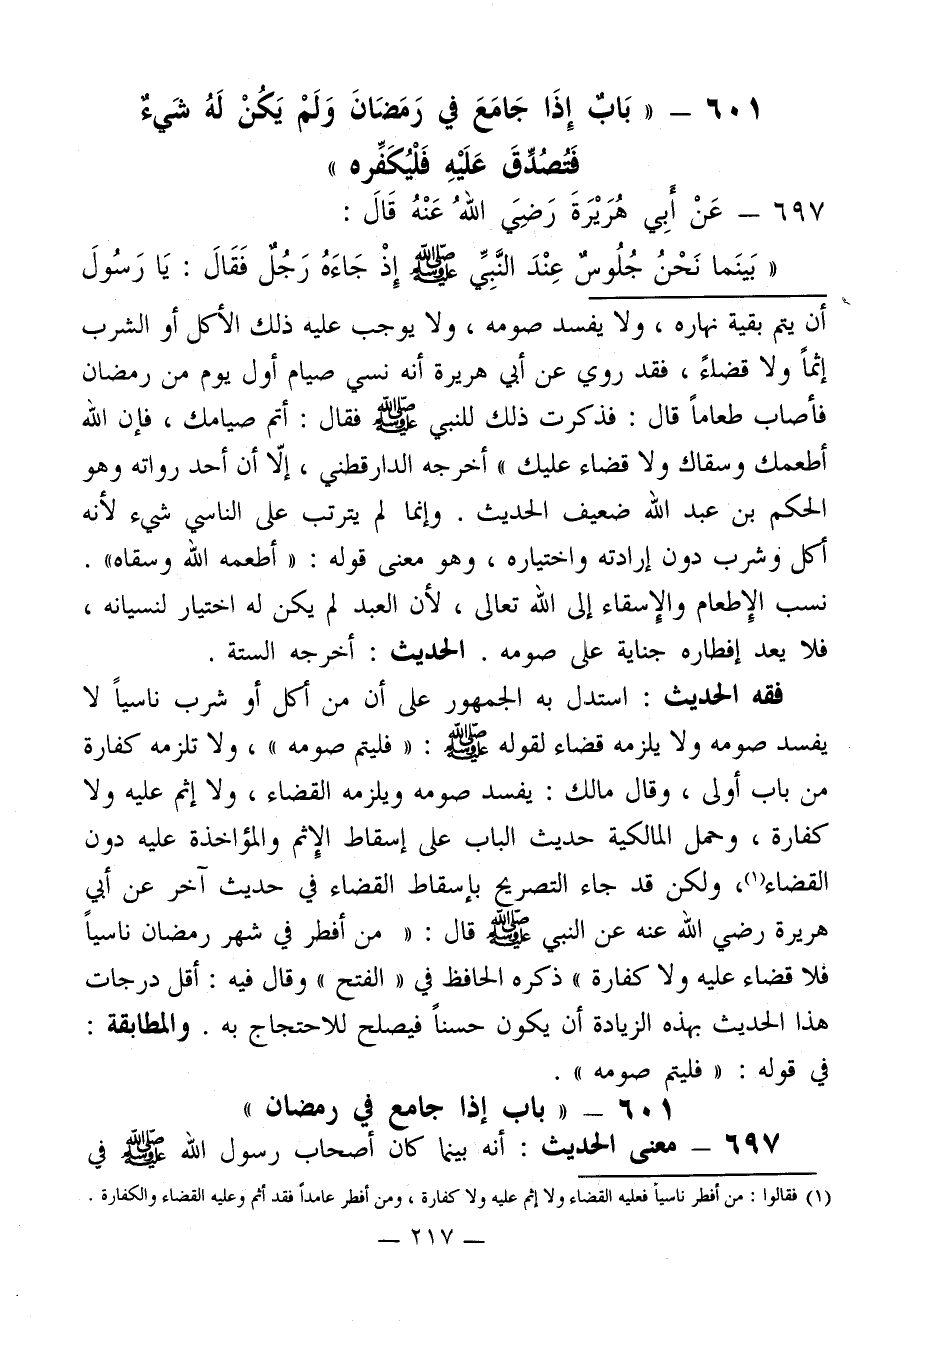 ٦٠١ – « بَابٌ إِذَا جَامَعَ في رَمَضَانَ وَلَمْ يَكُنْ لَهُ شَيْءٌ
فَتُصُدِّقَ عَلَيْهِ فَلْيُكَفِّره »
٦٩٧ – عَنْ أَبِي هُرَيْرَةَ رَضِيَ اللهُ عَنْهُ قَالَ :
« بَيْنَما نَحْنُ جُلُوسٌ عِنْدَ النَّبِيِّ ﷺ إِذْ جَاءَهُ رَجُلٌ فَقَالَ : يَا رَسُولَ
أن يتم بقية نهاره ، ولا يفسد صومه ، ولا يوجب عليه ذلك الأكل أو الشرب
إثماً ولا قضاءً ، فقد روي عن أبي هريرة أنه نسي صيام أول يوم من رمضان
فأصاب طعاماً قال : فذكرت ذلك للنبي ﷺ فقال : أتم صيامك ، فإن الله
أطعمك وسقاك ولا قضاء عليك » أخرجه الدارقطني ، إلّا أن أحد رواته وهو
الحكم بن عبد الله ضعيف الحديث . وإنما لم يترتب على الناسي شيء لأنه
أكل وشرب دون إرادته واختياره ، وهو معنى قوله : « أطعمه الله وسقاه» .
نسب الإطعام والإسقاء إلى الله تعالى ، لأن العبد لم يكن له اختيار لنسيانه ،
فلا يعد إفطاره جناية على صومه . الحديث : أخرجه الستة .
فقه الحديث : استدل به الجمهور على أن من أكل أو شرب ناسياً لا
يفسد صومه ولا يلزمه قضاء لقوله ﷺ : « فليتم صومه » ، ولا تلزمه كفارة
من باب أولى ، وقال مالك : يفسد صومه ويلزمه القضاء ، ولا إثم عليه ولا
كفارة ، وحمل المالكية حديث الباب على إسقاط الإثم والمؤاخذة عليه دون
القضاء(١)، ولكن قد جاء التصريح بإسقاط القضاء في حديث آخر عن أبي
هريرة رضي الله عنه عن النبي ﷺ قال : « من أفطر في شهر رمضان ناسياً
فلا قضاء عليه ولا كفارة » ذكره الحافظ في « الفتح » وقال فيه : أقل درجات
هذا الحديث بهذه الزيادة أن يكون حسناً فيصلح للاحتجاج به . والمطابقة :
في قوله : « فليتم صومه » .
٦٠١ – « باب إذا جامع في رمضان »
٦٩٧ – معنى الحديث : أنه بينما كان أصحاب رسول الله ﷺ في
(١) فقالوا : من أفطر ناسياً فعليه القضاء ولا إثم عليه ولا كفارة ، ومن أفطر عامداً فقد أثم وعليه القضاء والكفارة .
– ٢١٧ –